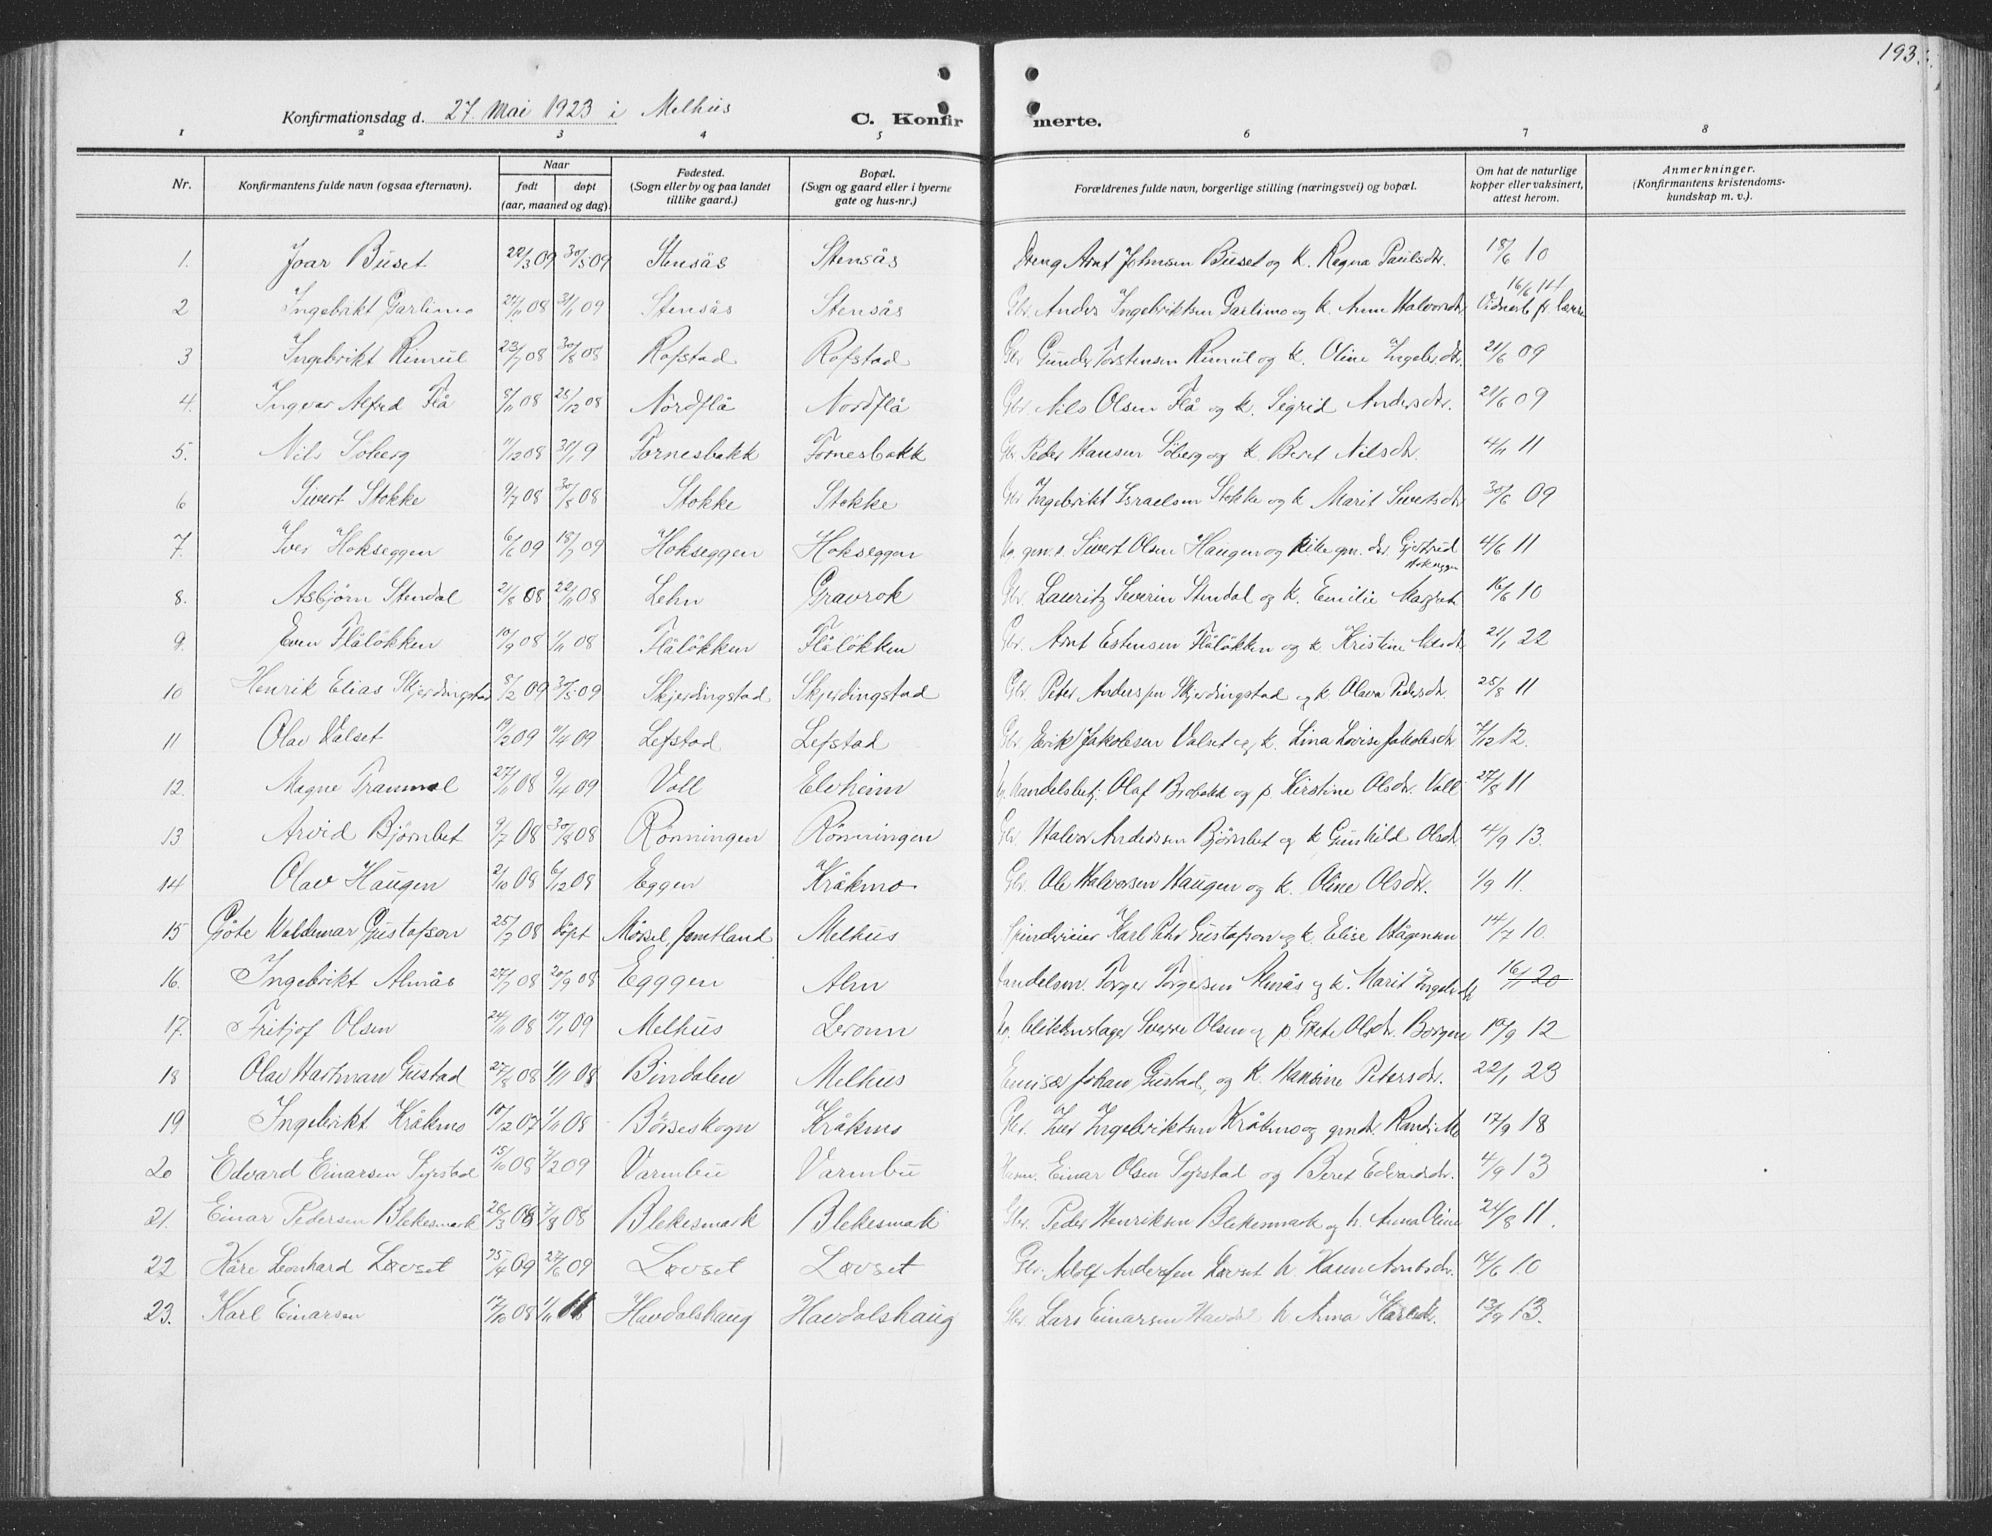 193
Konfirmationsdag d. 27. Mai 1923 i Melhus C. Konfirmerte.
1 2 3 4 5 6 7 8
Nr. Konfirmantens fulde navn (ogsaa efternavn). Naar født døpt (aar, maaned og dag). Fødested. (Sogn eller by og paa landet tillike gaard.) Bopæl. (Sogn og gaard eller i byerne gate og hus-nr.) Forældrenes fulde navn, borgerlige stilling (næringsvei) og bopæl. Om hat de naturlige kopper eller vaksinert, attest herom. Anmerkninger. (Konfirmantens kristendoms-kundskap m. v.).
1. Joar Buset 30/5 09 Stensås Stensås Dreng Arnt Johnsen Buset og k. Ragna Paulsdr. 18/6 10
2 Ingebrikt Garlimo 08 31/1 09 Stensås Stensås Gbr. Anders Ingebriktsen Garlimo og k. Anne Halvorsdr 16/6 14
3 Ingebrikt Rimul 23/7 08 30/8 08 Rofstad Rofstad Gbr Gunder Torstensen Rimul og k. Oline Ingebr.dtr. 21/6 09
4. Ingvar Alfred Flå 8/11 08 25/12 08 Nordflå Nordflå Gbr. Nils Olsen Flå og k. Sigrid Andersdr. 21/6 09
5. Nils Søberg 11/12 08 31/1 9 Tornesbakk Tornesbakk Gbr Peder Hansen Søberg og k. Beret Nilsdr. 4/11 11
6 Sivert Stokke 9/7 08 30/8 08 Stokke Stokke Gbr Ingebrikt Israelsen Stokke og k Marit Sivertsdr 30/6 09
7. Iver Hokseggen 6/6 09 18/7 09 Hokseggen Hokseggen Sivert Olsen Haugen og Gjertrud Hokseggen 4/6 11
8. Asbjørn Stendal 21/8 08 22/11 08 Lehn Gravrok Gbr. Lauritz Severin Stendal og k. Emilie Margrete 16/6 10
9. Even Flåløkken 10/9 08 1/11 08 Flåløkken Flåløkken Gbr. Arnt Estensen Flåløkken og k. Kristine 21/1 22
10 Henrik Elias Skjerdingstad 8/2 09 30/5 09 Skjerdingstad Skjerdingstad Gbr. Peter Anderssen Skjerdingstad og k. Olava Pedersdr. 25/8 11
11 Olav Valset 19/2 09 11/4 09 Lefstad Lefstad Gbr. Erik Jakobsen Valset og k. Lina Lovise Jakobsdr 7/12 12.
12. Magne Tranmæl 27/11 08 9/4 09 Voll Elvheim Handelsbetj. Olaf Brobakk og p Kirstine Olsdr. Voll 27/8 11
13 Arvid Bjørnbet 9/7 08 30/8 08 Rönningen Rönningen Gbr Halvor Anderssen Bjørnbet og k Gunhild Olsdr 4/9 13.
14 Olav Haugen 2/10 08 6/12 08 Eggen Kråkmo Gbr. Ole Halvorsen Haugen og k. Oline Olsdr. 1/9 11.
15 Göte Waldemar Gustafson 25/7 08 döpt Mörsel, Jemtland Melhus Karl Petr Gustafson og k. Elise Hågensen 14/7 10.
16. Ingebrikt Almås 27/7 08 20/9 08 Egggen Alm Handelsm. Torger Torgersen Almås og k. Marit Ingebr.dtr 16/1 20
17. Fritjof Olsen 24/11 08 17/1 09 Melhus Leronn blikkenslager Sverre Olsen og p Grete Olsdr. Borgen 10/9 12
18 Olav Hartman Gustad 27/8 08 1/11 08 Bindalen Melhus Emisær Johan Gustad, og k. Hansine Petersdr. 22/1 23
19 Ingebrikt Kråkmo 10/12 07 1/11 08 Börseskogn Kråkmo Gbr. Iver Ingebriktsen Kråkmo og Randi Mo 17/9 18
20 Edvard Einarsen Syrstad 15/10 08 7/2 09 Varmbu Varmbu Husm. Einar Olsen Syrstad og Beret Edvardsdr. 4/9 13
21. Einar Pedersen Blekesmark 26/3 08 2/8 08 Blekesmark Blekesmark Gbr. Peder Henriksen Blekesmark og h. Anna Oline 24/8 11.
22 Kåre Leonhard Løvset 25/4 09 27/6 09 Løvset Løvset Gbr. Adolf Anderssen Løvset h. Hanna Arntsdr. 14/6 10
23. Karl Einarsen 17/10 08 1/11 Havdalshaug Havdalshaug Gbr. Lars Einarsen h. Anna Karlsdr. 13/9 13.